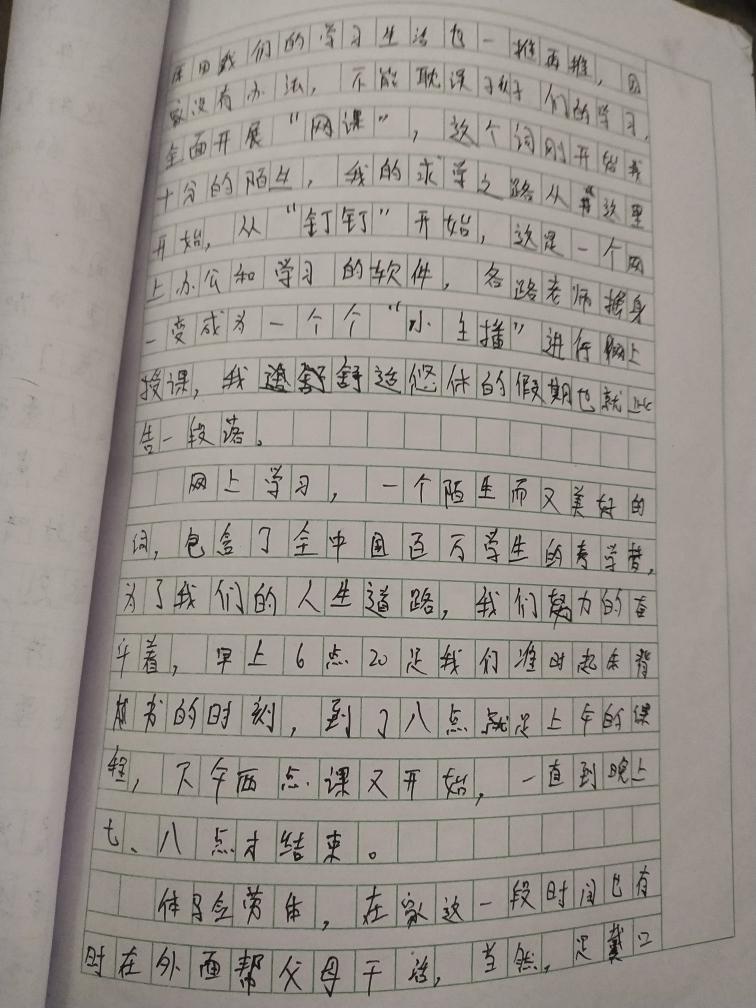 因我们的学习生活也一推再推，国
家没有办法，不能耽误孩子们的学习，
全面开展“网课”，这个词刚开始我
十分的陌生，我的求学之路从这里
开始，从“钉钉”开始，这是一个网
上办公和学习的软件，各路老师摇身
一变成为一个个“小主播”进行网上
授课，我舒适悠休的假期也就此
告一段落。
网上学习，一个陌生而又美好的
词，包含了全中国百万学生的考学梦，
为了我们的人生道路，我们努力的奋
斗着，早上6点20是我们准时起床背
书的时刻，到了八点就是上午的课
程，下午两点课又开始，一直到晚上
七、八点才结束。
体会劳体，在家这一段时间也有
时在外面帮父母干活，当然，是戴口